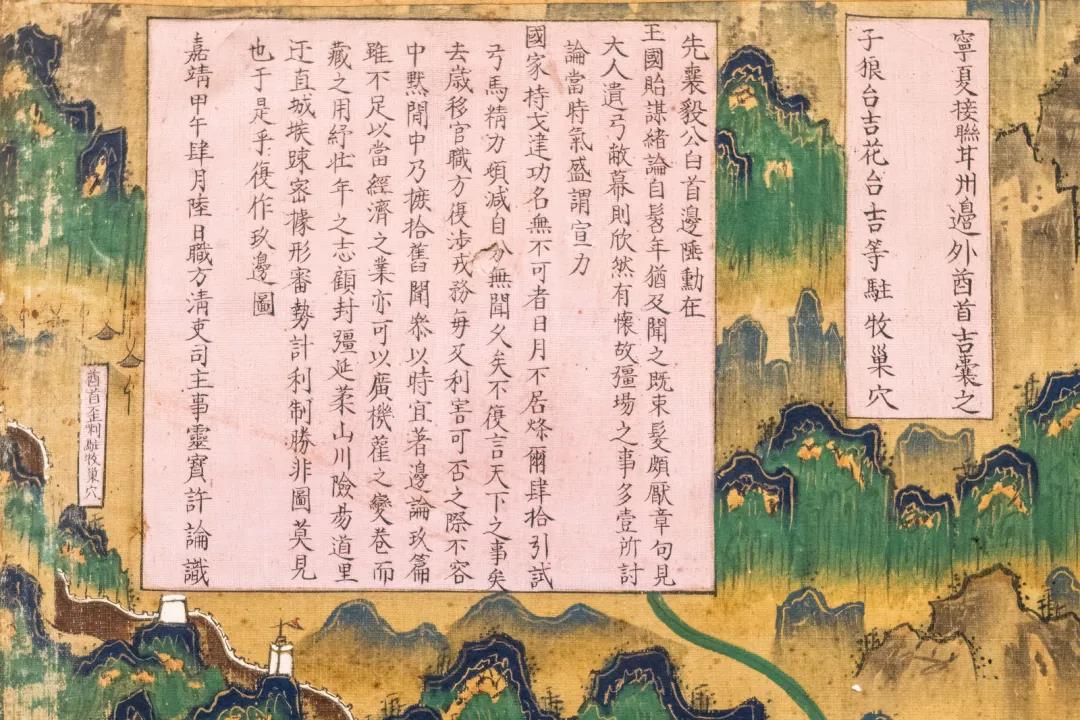 寧夏接聯甘州邊外酋首吉囊之
子狼台吉花台吉等駐牧巢穴
先襄毅公白首邊陲勳在
王國貽謀緒論自髫年猶及聞之既束髮頗厭章句見
大人遺弓敝幕則欣然有懷故彊場之事多壹所討
論當時氣盛謂宣力
國家持戈建功名無不可者日月不居倏爾肆拾引試
弓馬精力頓減自分無聞久矣不復言天下之事矣
去歲移官職方復涉戎務每及利害可否之際不容
中默閒中乃摭拾舊聞叅以時宜著邊論玖篇
雖不足以當經濟之業亦可以廣機權之變卷而
藏之用紓壯年之志顧封彊延袤山川險易道里
迂直城堠踈密據形審勢計利制勝非圖莫見
也于是乎復作玖邊圖
嘉靖甲午肆月陸日職方清吏司主事靈寶許論識
酋首歪剌駐牧巢穴